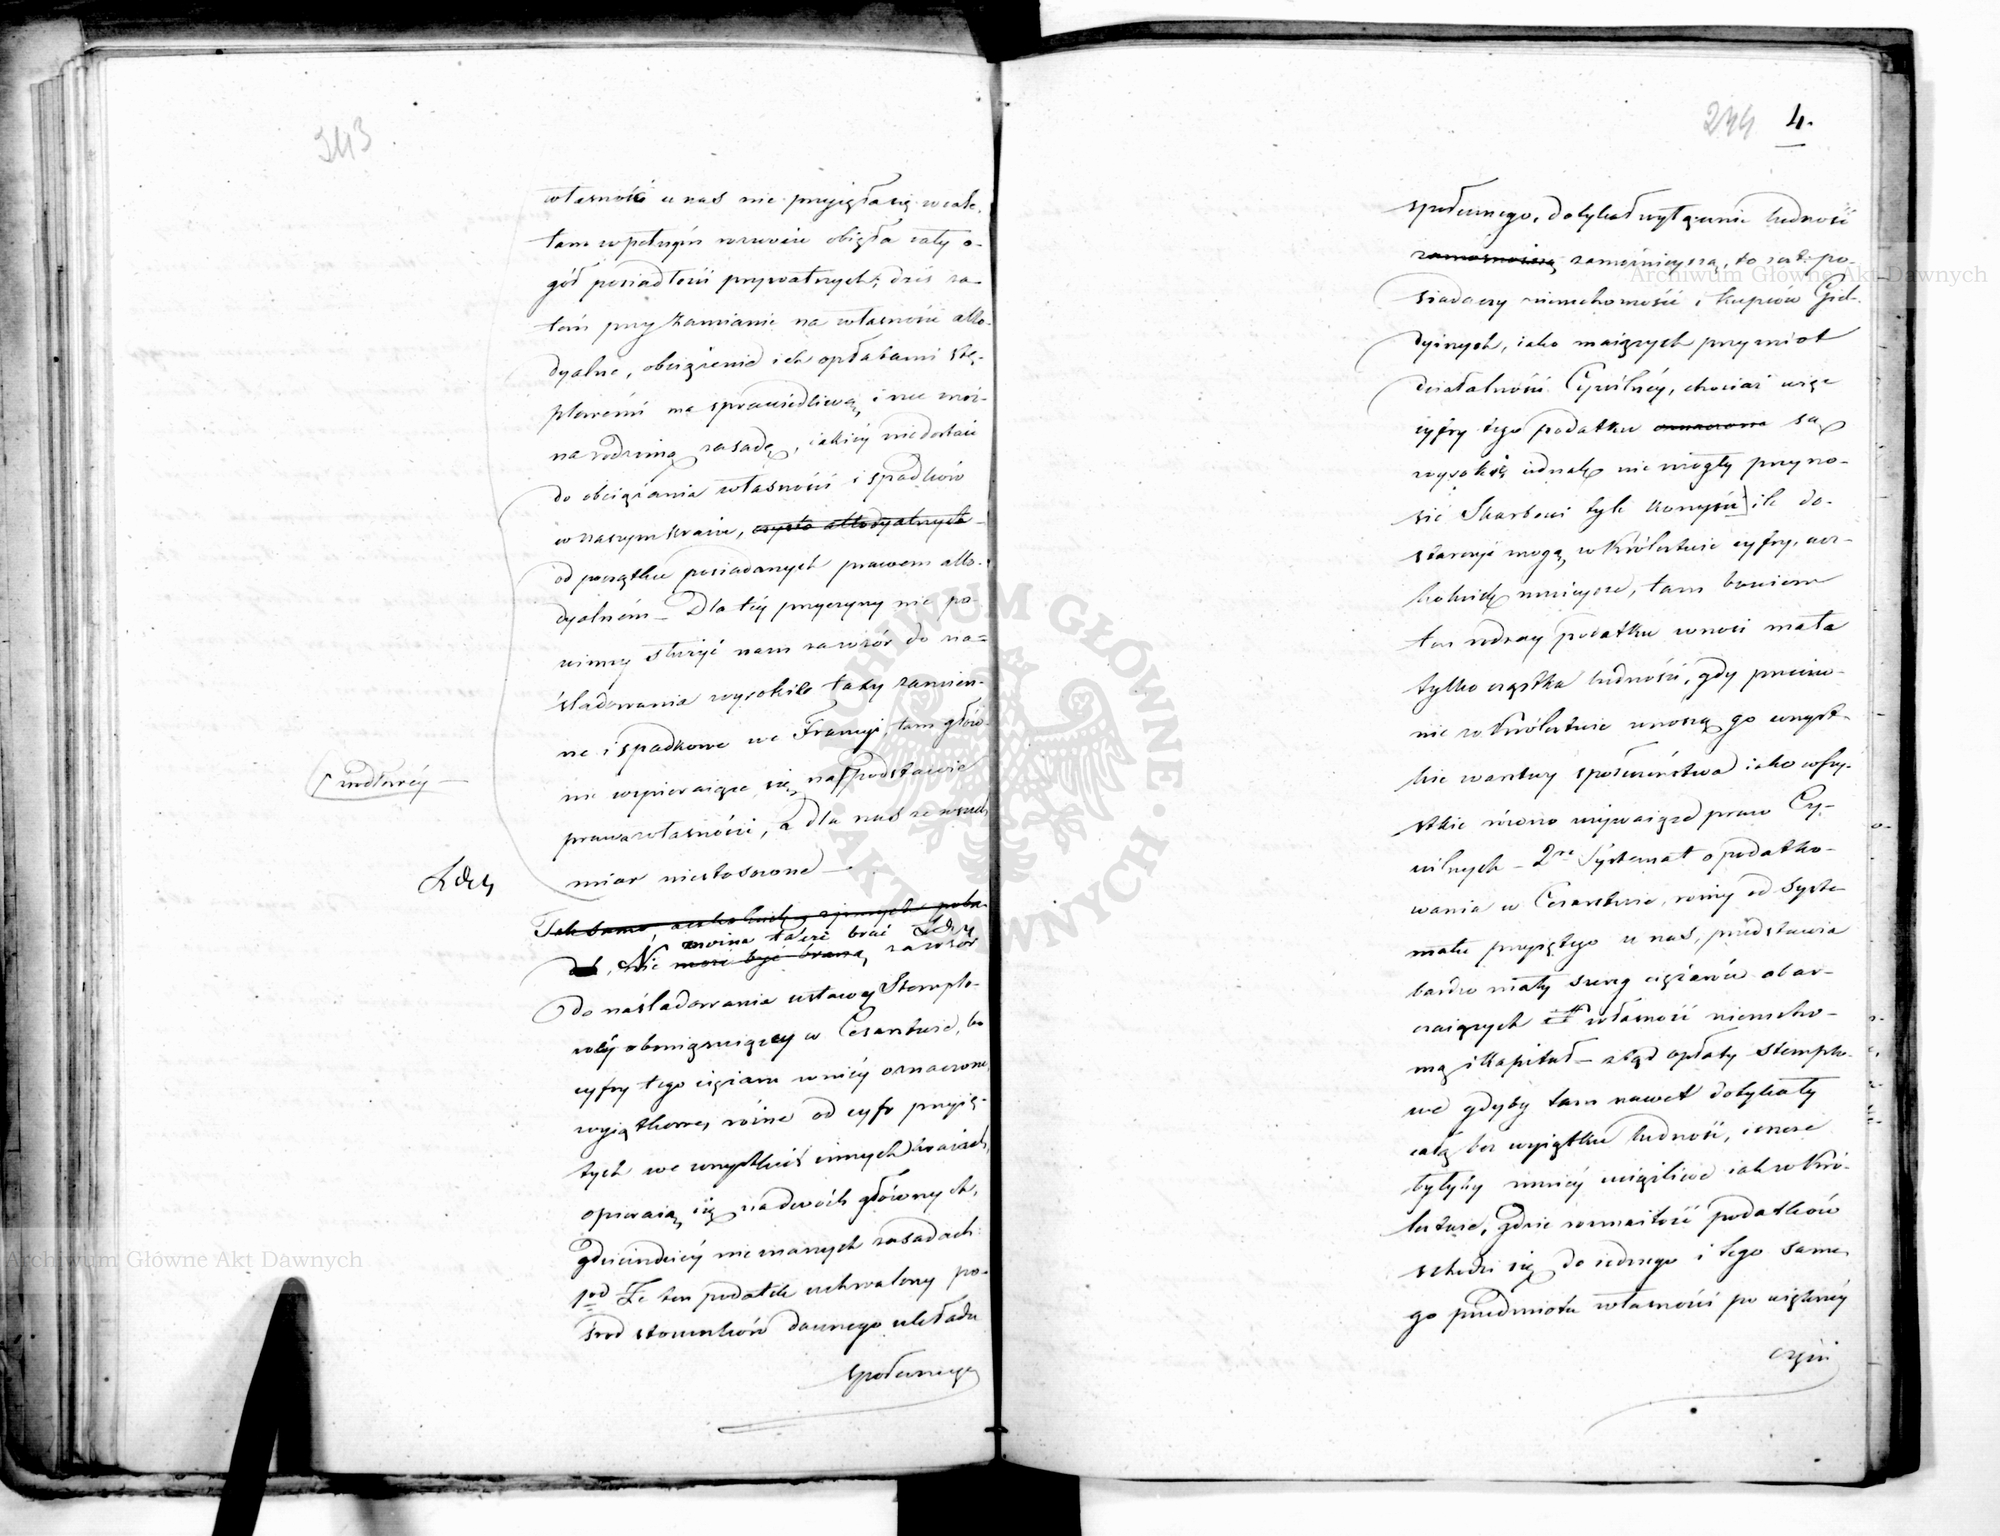 243
własność u nas nie przyjęła się wcale,
tam w pełnym rozwoju objęła cały o-
gół posiadłości prywatnych; dziś za-
tem przy zamianie na własność allo-
dyalne, obciążenie ich opłatami stę-
plowemi ma sprawiedliwą, i nie
na rodzimą zasadę, jakiéj niedostaie
do obciążania własności i spadków
w naszym kraiu, czysto allodyalnych
od początku posiadanych prawem allo-
dyalném – Dla téj przyczyny nie po-
winny służyć nam za wzór do na-
śladowania wysokie taxy zamien-
ne i spadkowe we Francyi, tam głów-
nie wspieraiące się na podstawie
prawa własności, a dla nas ze wszech
miar niestosowne –
źródłowéj –
Tak samo, aczkolwiek z pobu-
można także brać
Nie może być braną, za wzór
do naśladowania ustawy Stemplo-
wéj obowiązuiącéj w Cesarstwie, bo
cyfry tego ciężaru w niéj oznaczone,
wyiątkowe, różne od cyfr przyię-
tych we wszystkich innych kraiach,
opieraią się na dwóch głównych,
gdzieindziéj nieznanych zasadach:
1od Że ten podatek uchwalony po-
śród stosunków dawnego układu
społecznego
244 4.
społecznego, dotykał wyłącznie ludność
zamożnieyszą, to iest po-
siadaczy nieruchomości i kupców Gil-
dyjnych, iako maiących przymiot
działalności Cywilnéj, chociaż więc
cyfry tego podatku oznaczone są
wysokie iednak nie mogły przyno-
sić Skarbowi tyle korzyści ile do-
starczyć mogą w Królestwie cyfry, acz-
kolwiek mnieysze, tam bowiem
ten rodzay podatku wnosi mała
tylko cząstka ludności, gdy przeciw-
nie w Królestwie wnoszą go wszyst-
kie warstwy społeczeństwa iako wszy-
stkie równo używaiące praw Cy-
wilnych – 2re Systemat opodatko-
wania w Cesarstwie, różny od syste-
matu przyiętego u nas, przedstawia
bardzo mały szereg ciężarów obar-
czaiących własność nierucho-
mą i Kapitał – ztąd opłaty stemplo-
we gdyby tam nawet dotykały
całą bez wyiątku ludność, ieszcze
byłyby mniéj uciążliwe iak w Kró-
lestwie, gdzie rozmaitość podatków
schodzi się do iednego i tego same-
go przedmiotu własności po większéj
części
Archiwum Główne Akt Dawnych
Archiwum Główne Akt Dawnych
ARCHIWUM GŁÓWNE · AKT DAWNYCH ·